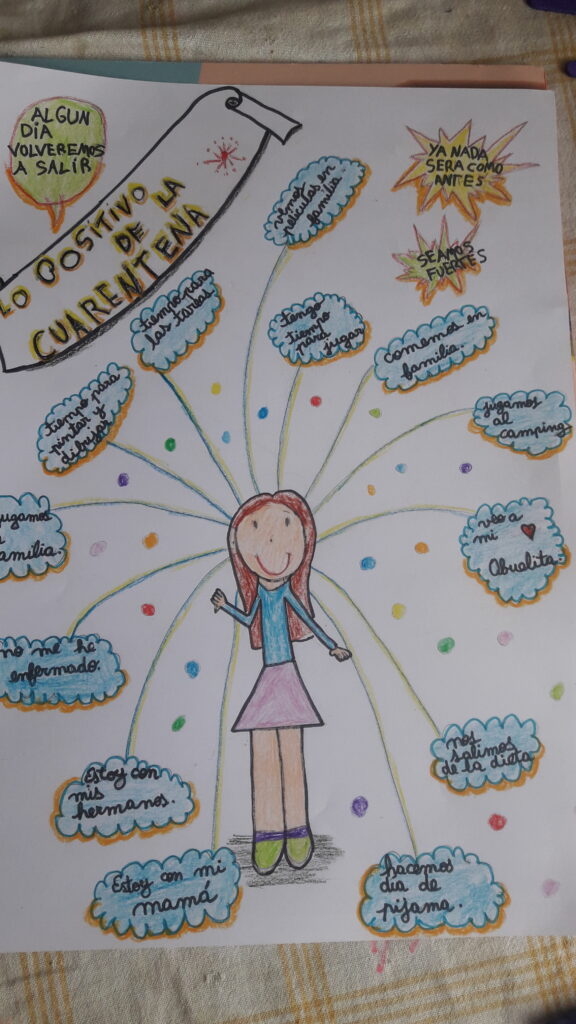 ALGUN
DÍA
VOLVEREMOS
A SALIR
LO POSITIVO
DE LA
CUARENTENA
YA NADA
SERA COMO
ANTES
SEAMOS
FUERTES
vemos
películas en
familia.
tiempo para
las tareas
tengo
tiempo
para
jugar
comemos en
familia.
tiempo para
pintar y
dibujar
jugamos
al
camping
jugamos
familia.
veo a
mi
Abualita.
no me he
enfermado.
nos
salimos
de la dieta
Estoy con
mis
hermanos.
Estoy con mi
mamá
hacemos
dia de
pijama.